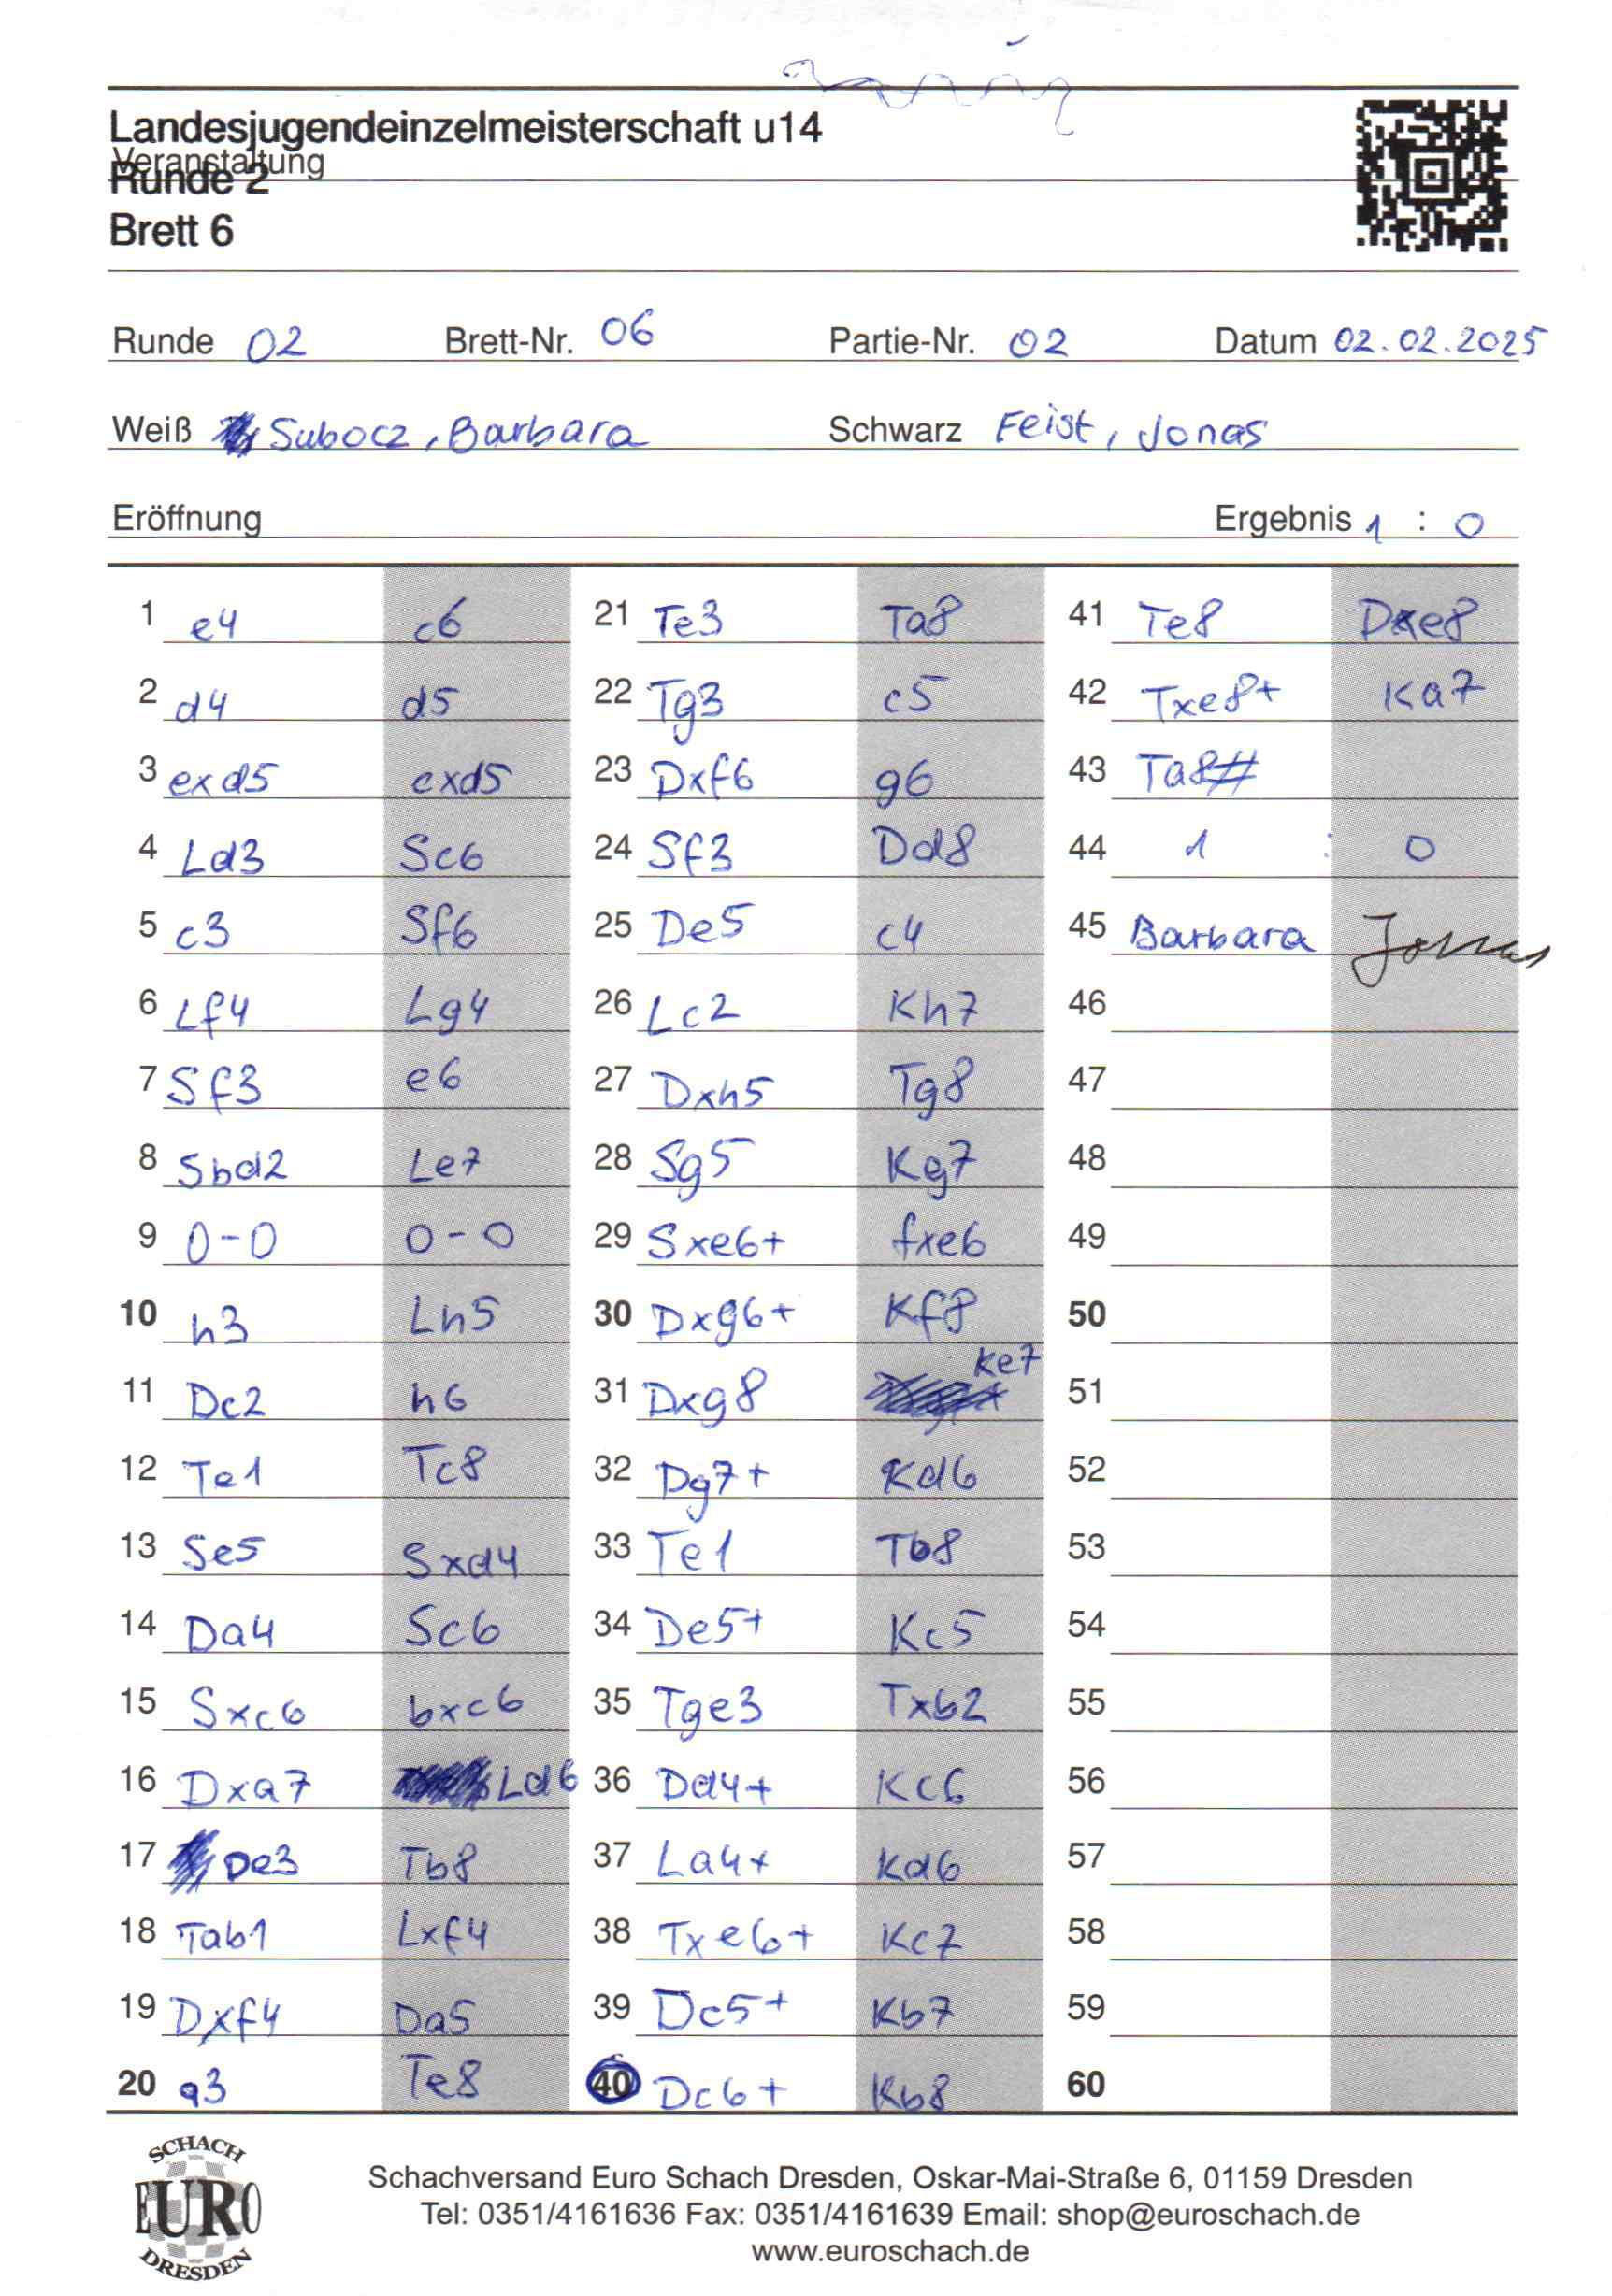 Landesjugendeinzelmeisterschaft u14
Veranstaltung
Runde 2
Brett 6
Runde 02 Brett-Nr. 06 Partie-Nr. 02 Datum 02.02.2025
Weiß Subocz, Barbara Schwarz Feist, Jonas
Eröffnung Ergebnis 1 : 0
1 e4 c6 21 Te3 Ta8 41 Te8 Dxe8
2 d4 d5 22 Tg3 c5 42 Txe8+ Ka7
3 exd5 cxd5 23 Dxf6 g6 43 Ta8#
4 Ld3 Sc6 24 Sf3 Dd8 44 1 : 0
5 c3 Sf6 25 De5 c4 45 Barbara Jonas
6 Lf4 Lg4 26 Lc2 Kh7 46
7 Sf3 e6 27 Dxh5 Tg8 47
8 Sbd2 Le7 28 Sg5 Kg7 48
9 0-0 0-0 29 Sxe6+ fxe6 49
10 h3 Lh5 30 Dxg6+ Kf8 50
11 Dc2 h6 31 Dxg8 Ke7 51
12 Te1 Tc8 32 Dg7+ Kd6 52
13 Se5 Sxd4 33 Te1 Tb8 53
14 Da4 Sc6 34 De5+ Kc5 54
15 Sxc6 bxc6 35 Tge3 Txb2 55
16 Dxa7 Ld6 36 Dd4+ Kc6 56
17 De3 Tb8 37 La4+ Kd6 57
18 Tab1 Lxf4 38 Txe6+ Kc7 58
19 Dxf4 Da5 39 Dc5+ Kb7 59
20 a3 Te8 40 Dc6+ Kb8 60
SCHACH
EURO
DRESDEN
Schachversand Euro Schach Dresden, Oskar-Mai-Straße 6, 01159 Dresden
Tel: 0351/4161636 Fax: 0351/4161639 Email: shop@euroschach.de
www.euroschach.de